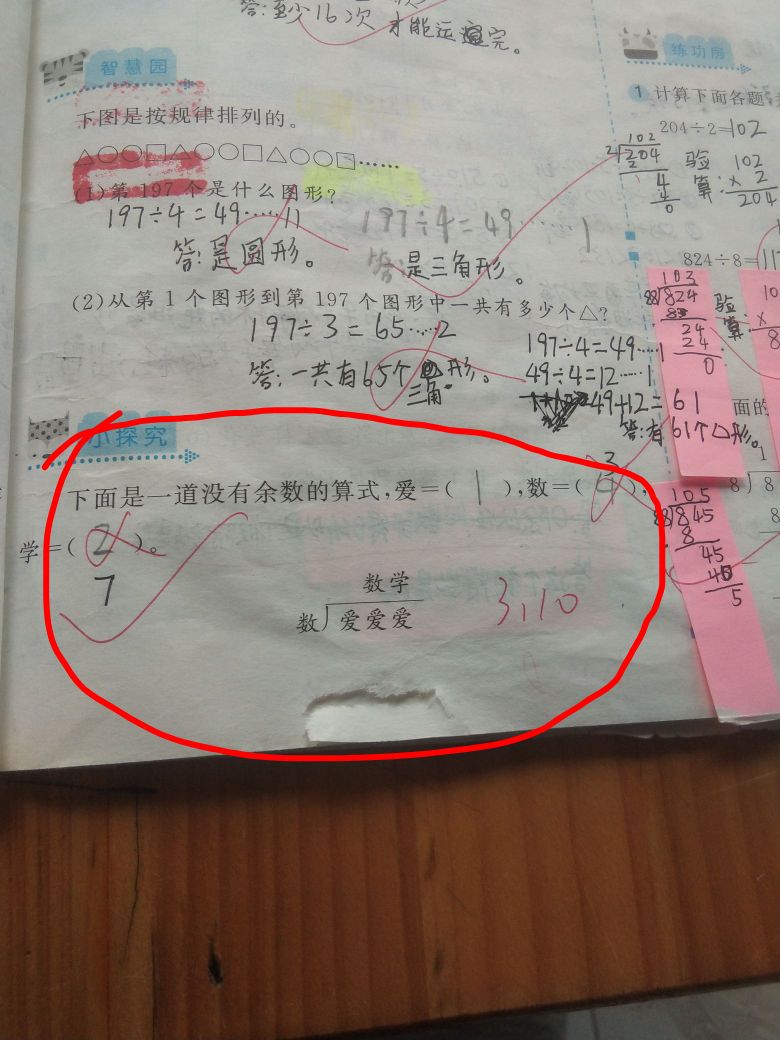 答:至少16次 才能运完。
智慧园
下图是按规律排列的。
△○○□△○○□△○○□……
(1)第 197 个是什么图形?
197÷4=49……11
197÷4=49……1
答:是圆形。
答:是三角形。
(2)从第 1 个图形到第 197 个图形中一共有多少个△?
197÷3=65……2
答:一共有65个 形。
三角
197÷4=49……1
49÷4=12……1
49+12=61
答:有61个△形。
小探究
下面是一道没有余数的算式,爱=( 1 ),数=( ),
3
学=( 2 )。
7
数学
数 爱爱爱
3,10
练功房
1 计算下面各题,
204÷2=102
102
2 204
4
4
0
验算:
102
×2
204
824÷8=
103
88 824
24
24
0
验算:
10
×
8
面的
1
8 8
8
105
88 845
8
45
40
5